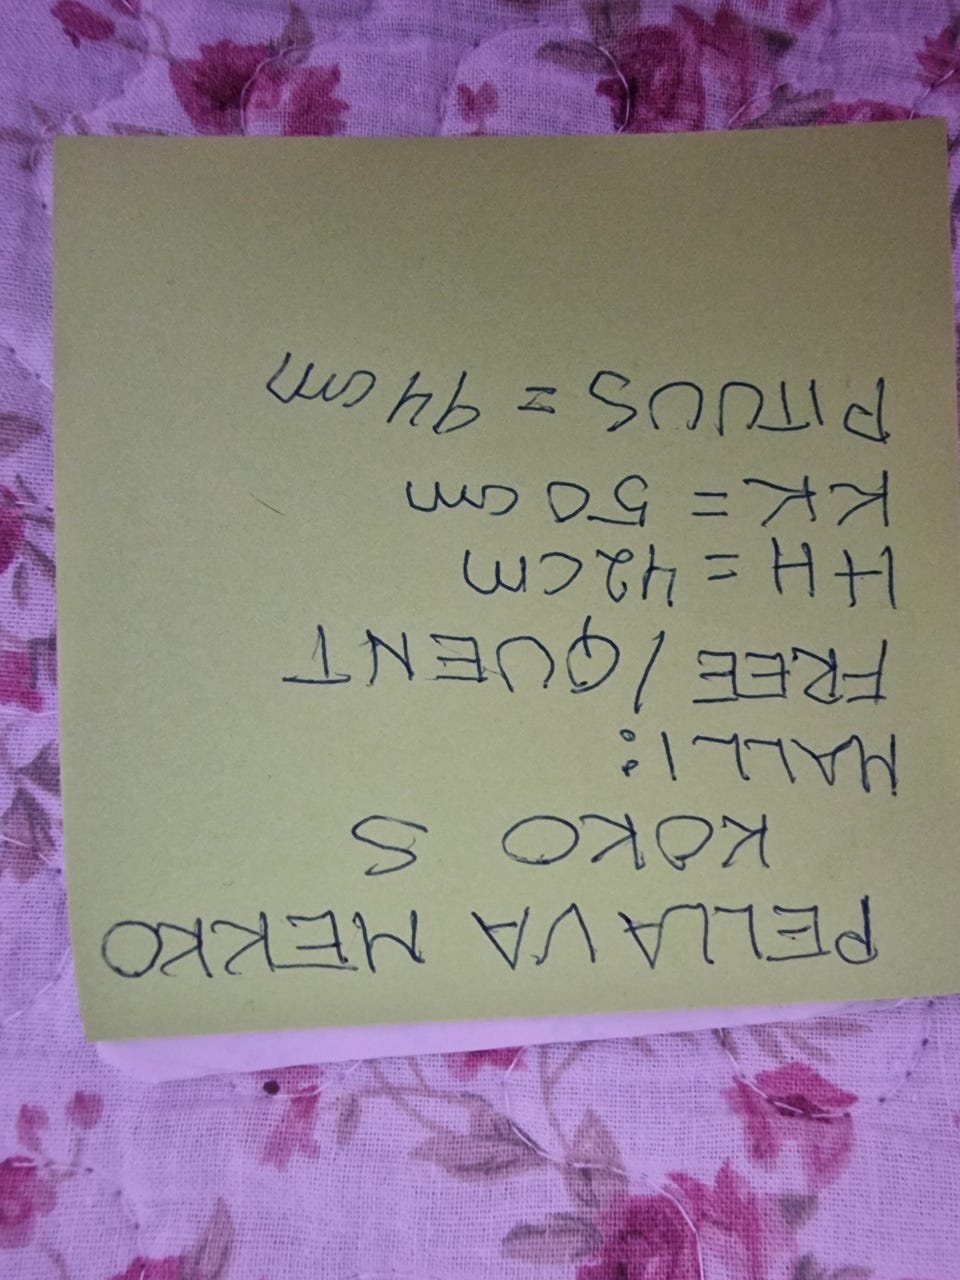 PELLAVA MEKKO
KOKO S
MALLI:
FREE/QUENT
HH = 42cm
KK = 50cm
PITUUS = 94cm